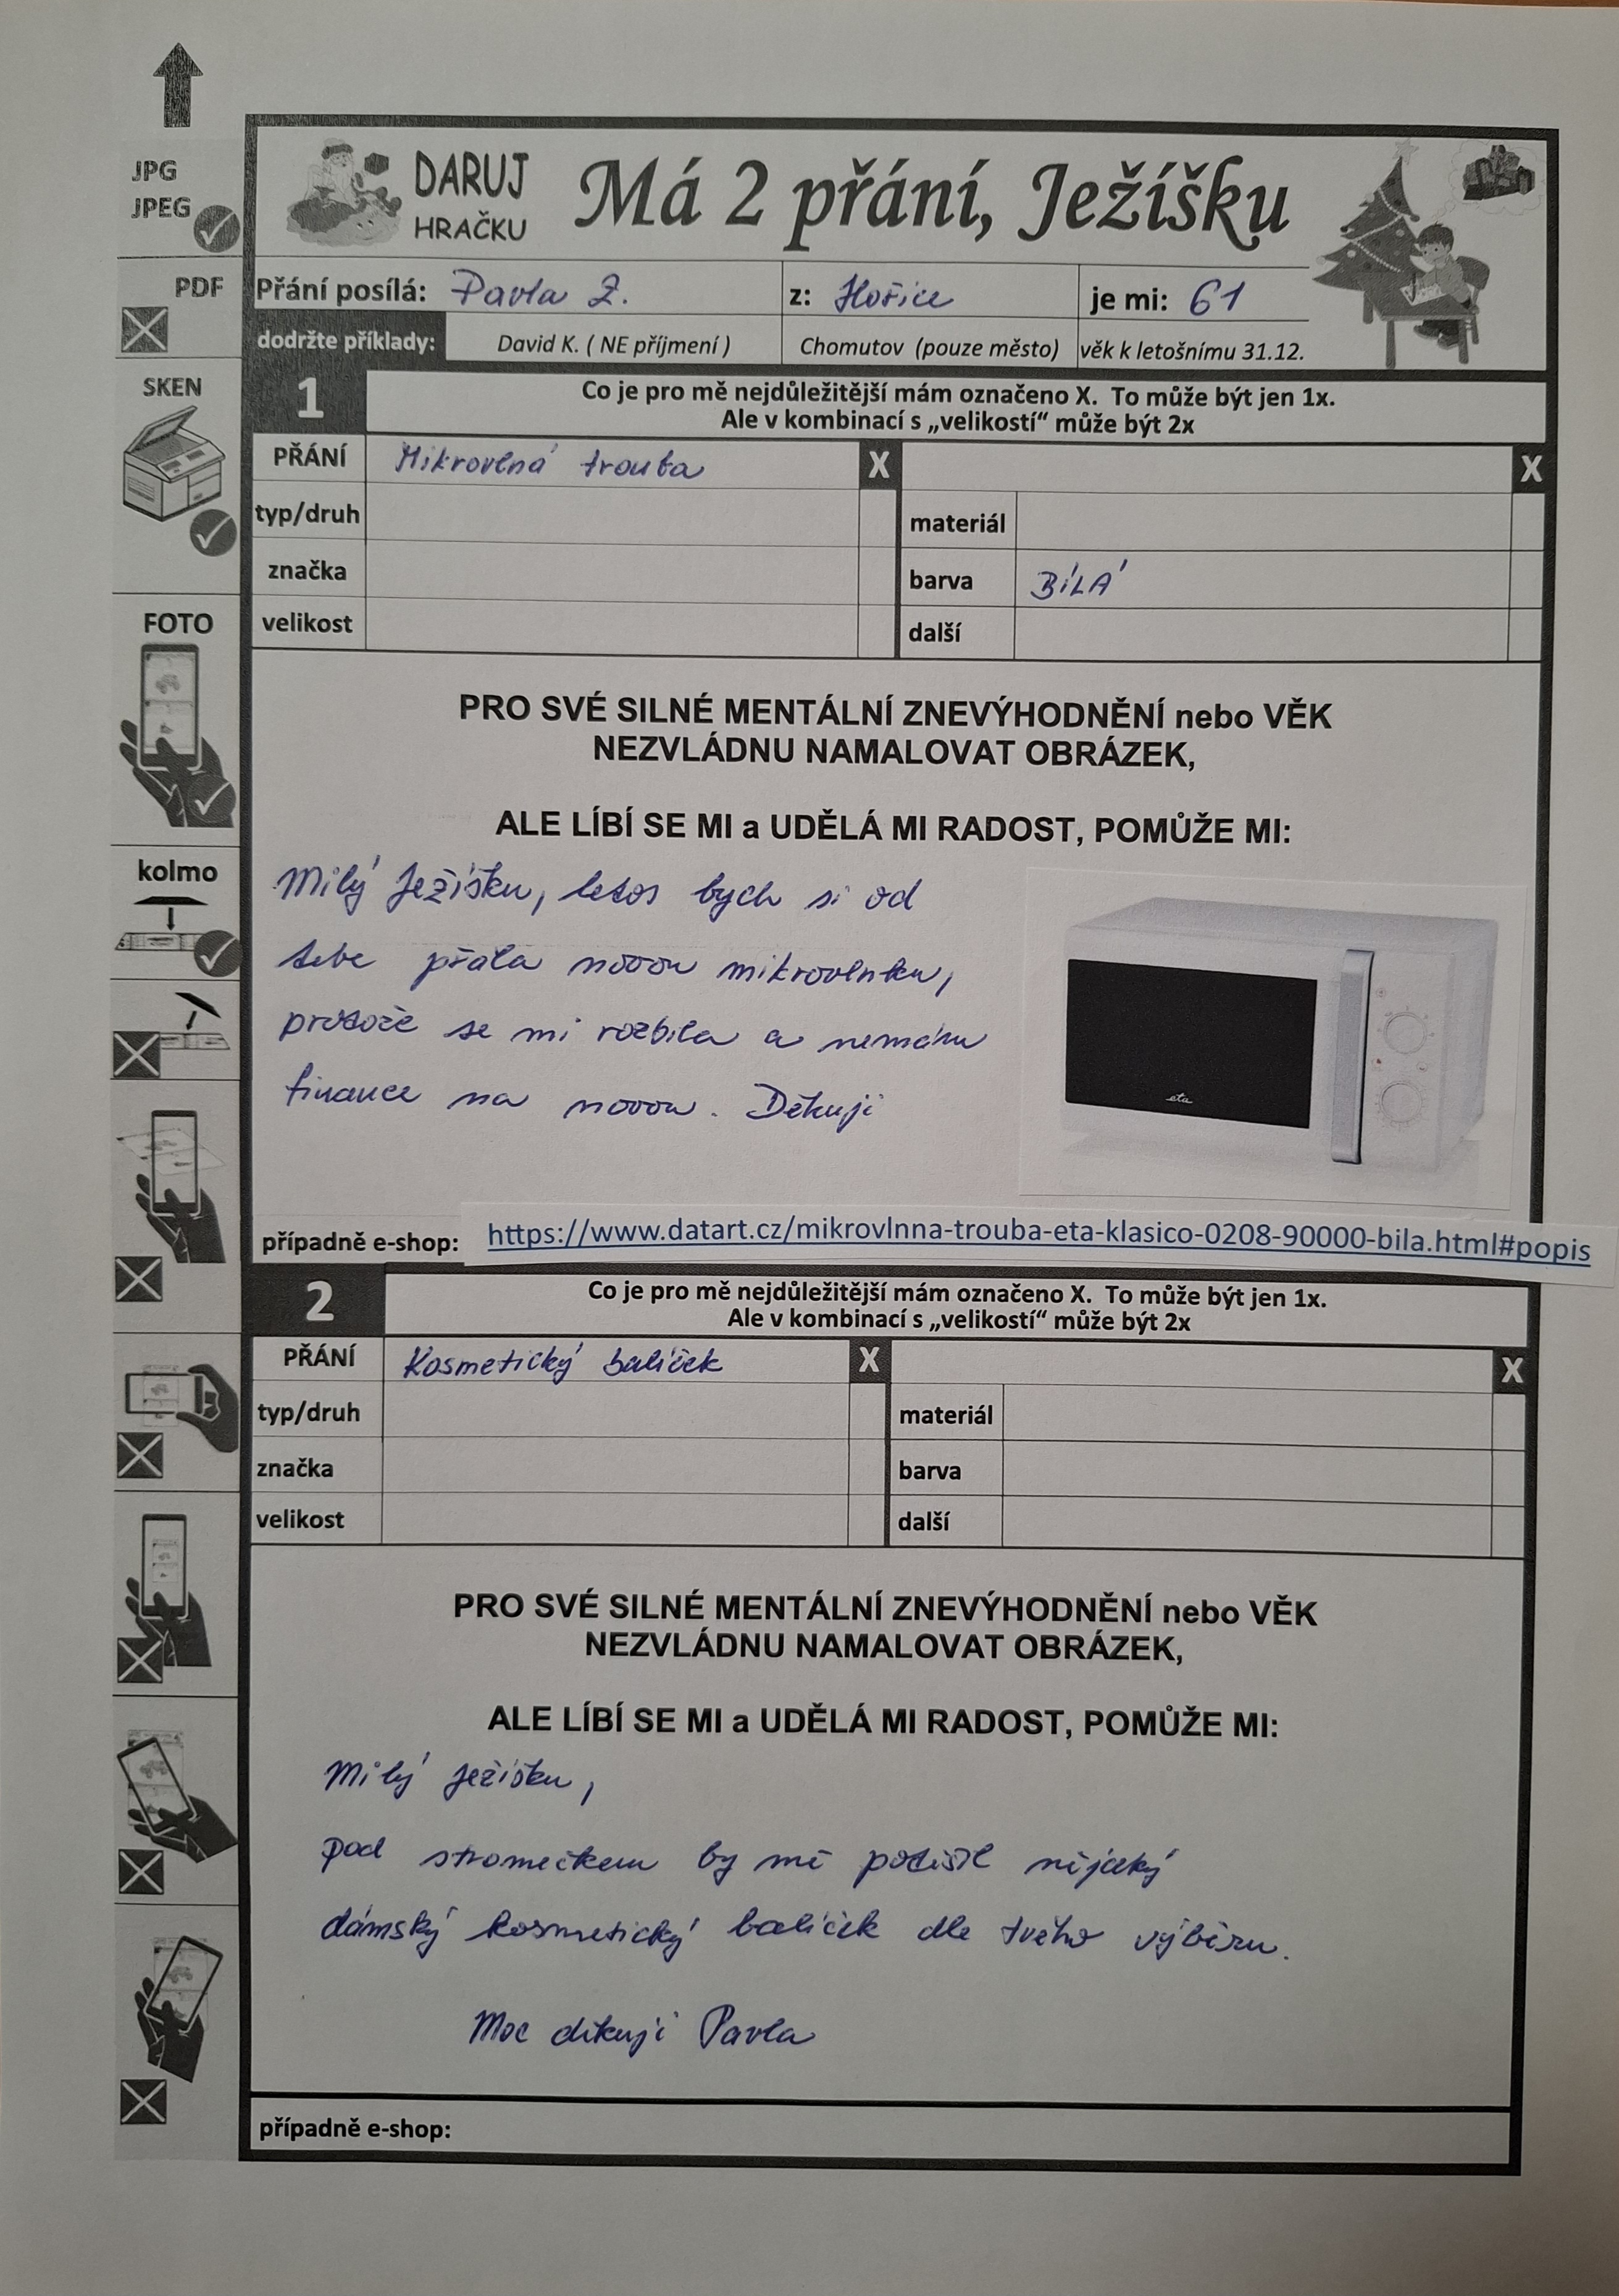 JPG
JPEG
PDF
SKEN
FOTO
kolmo
DARUJ
HRAČKU
Má 2 přání, Ježíšku
Přání posílá: Pavla Z. z: Hořice je mi: 61
dodržte příklady: David K. ( NE příjmení ) Chomutov (pouze město) věk k letošnímu 31.12.
1 Co je pro mě nejdůležitější mám označeno X. To může být jen 1x.
Ale v kombinací s „velikostí“ může být 2x
PŘÁNÍ Mikrovlná trouba X X
typ/druh materiál
značka barva BÍLÁ
velikost další
PRO SVÉ SILNÉ MENTÁLNÍ ZNEVÝHODNĚNÍ nebo VĚK
NEZVLÁDNU NAMALOVAT OBRÁZEK,
ALE LÍBÍ SE MI a UDĚLÁ MI RADOST, POMŮŽE MI:
Milý Ježíšku, letos bych si od
tebe přála novou mikrovlnku,
protože se mi rozbila a nemám
finance na novou. Děkuji
eta
případně e-shop: https://www.datart.cz/mikrovlnna-trouba-eta-klasico-0208-90000-bila.html#popis
2 Co je pro mě nejdůležitější mám označeno X. To může být jen 1x.
Ale v kombinací s „velikostí“ může být 2x
PŘÁNÍ Kosmetický balíček X X
typ/druh materiál
značka barva
velikost další
PRO SVÉ SILNÉ MENTÁLNÍ ZNEVÝHODNĚNÍ nebo VĚK
NEZVLÁDNU NAMALOVAT OBRÁZEK,
ALE LÍBÍ SE MI a UDĚLÁ MI RADOST, POMŮŽE MI:
Milý Ježíšku,
pod stromečkem by mě potěšil nějaký
dámský kosmetický balíček dle tvého výběru.
Moc děkuji Pavla
případně e-shop: